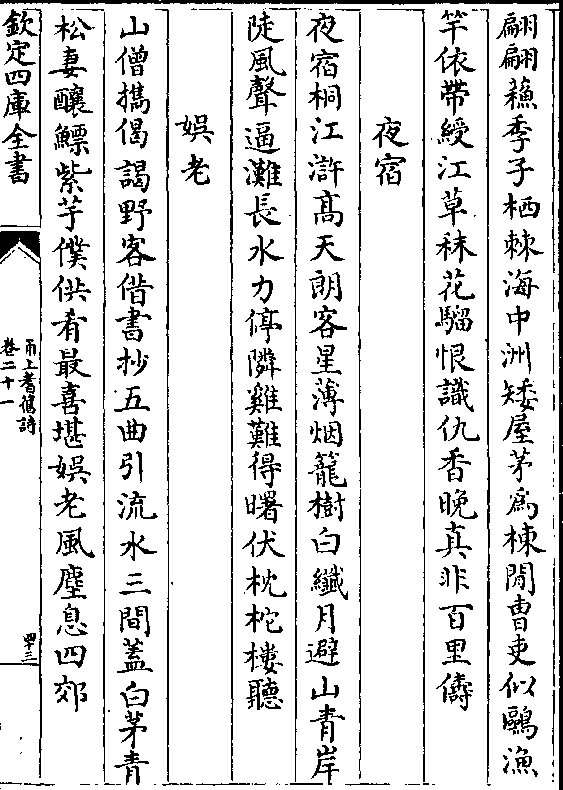 翩翩蘓季子栖棘海中洲矮屋茅為棟閒曹吏似鷗漁
竿依帶綬江草秣花騮恨識仇香晚真非百里儔
夜宿
夜宿桐江滸髙天朗客星薄烟籠樹白纖月避山青岸
陡風聲逼灘長水力停隣雞難得曙伏枕柁樓聽
娯老
山僧擕偈謁野客借書抄五曲引流水三間蓋白茅青
松妻釀鰾紫芋僕供肴最喜堪娯老風塵息四郊
欽定四庫全書
甬上耆舊詩
卷二十一
四十三